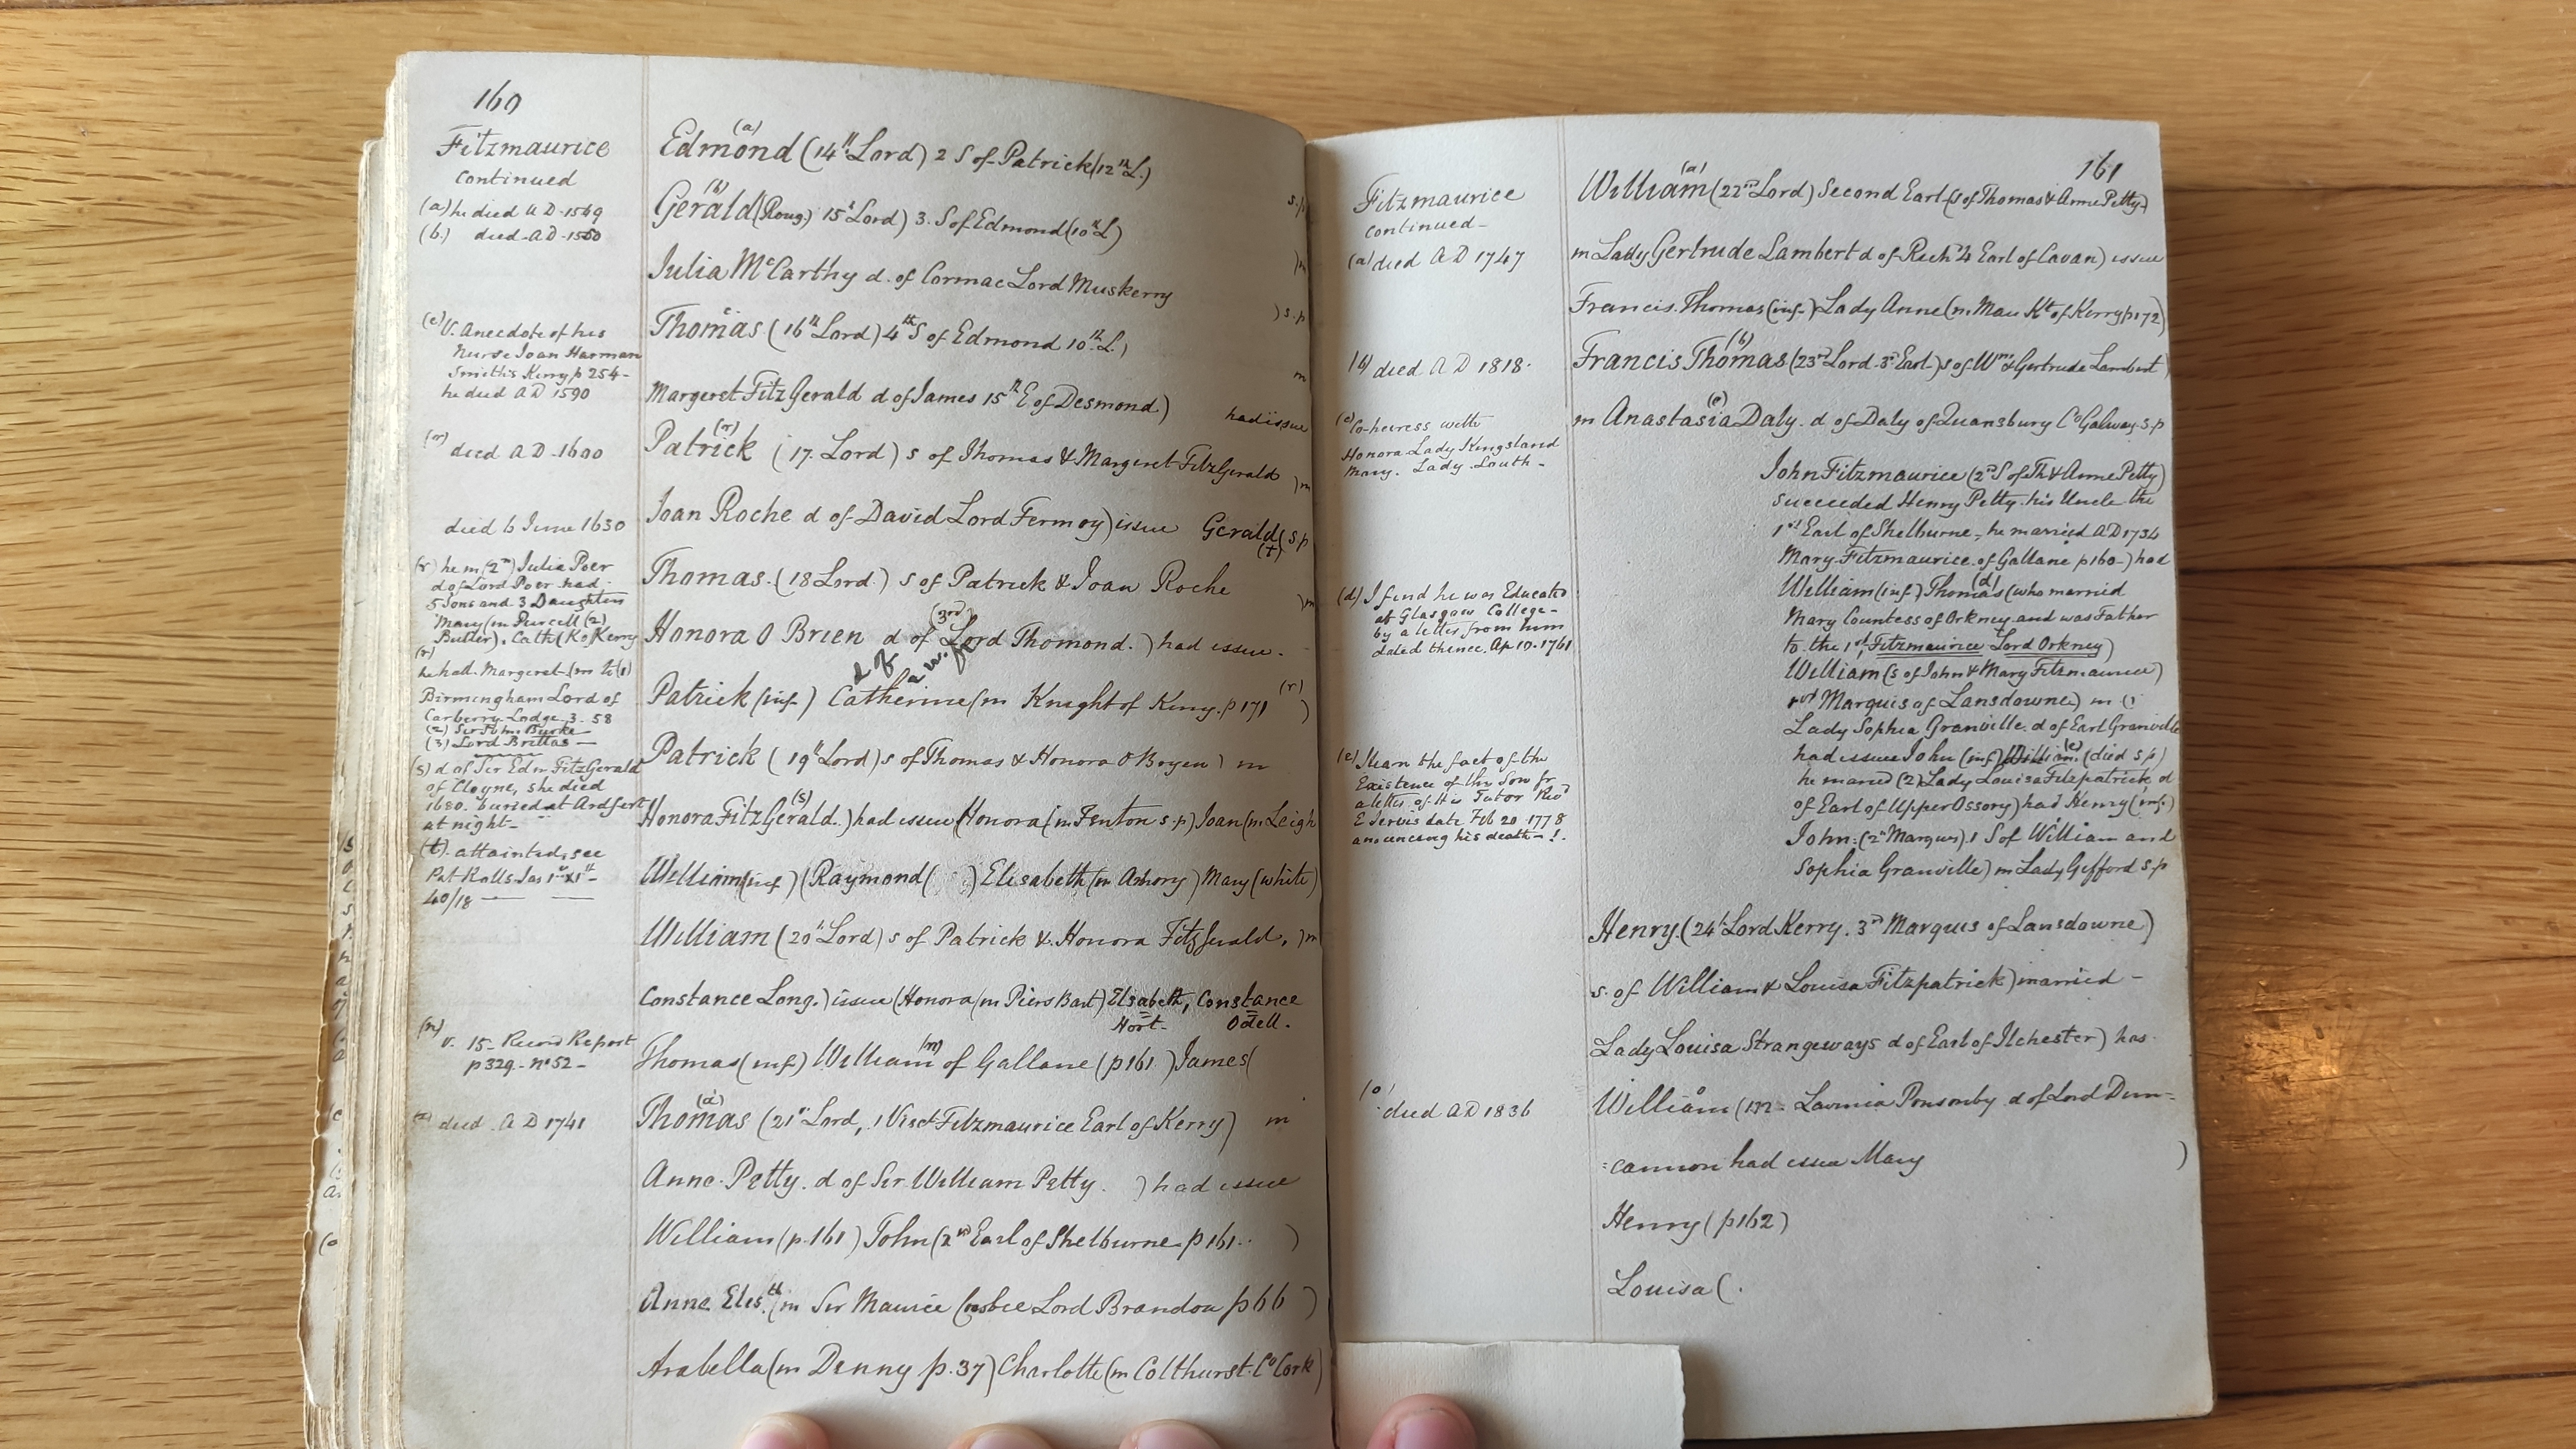 160
Fitzmaurice
continued
(a) he died AD 1549
(b.) died AD 1550
(c) V. Anecdote of his
Nurse Joan Harman
Smith's Kerry p 254-
he died AD 1590
died AD 1600
died 6 June 1630
(r) he m (2nd) Julia Poer
d of Lord Poer had
5 Sons and 3 Daughters
Mary (m Purcell (2)
Butler). Cath (K of Kerry
(r)
he had Margaret (m to (1)
Birmingham Lord of
Carberry Lodge 3. 58
(2) Sir John Burke
(3) Lord Brittas -
(s) d of Sir Edm FitzGerald
of Cloyne, she died
1680. buried at Ardfert
at night-
(t). attainted, see
Pat Rolls Jas 1st
40/18
(n)
v. 15- Record Report
p 329- no 52-
died AD 1741
Edmond (a) (14th Lord) 2 S of Patrick (12th L.)
s.p
Gerald (b) (Roug.) 15th Lord) 3. S of Edmond (10th L)
)m
Julia McCarthy d. of Cormac Lord Muskerry
) s.p
Thomas c (16th Lord) 4th S of Edmond 10th L.)
m
Margeret FitzGerald d of James 15th E of Desmond) had issue
Patrick (17. Lord) s of Thomas & Margeret FitzGerald )m
Joan Roche d of David Lord Fermoy) issue Gerald (s p
(t)
Thomas. (18 Lord.) s of Patrick & Joan Roche )m
Honora O Brien d of (3rd) Lord Thomond.) had issue.
Patrick (inf.) Catherine (m Knight of Kerry. p 171 (r) )
Patrick (19th Lord) s of Thomas & Honora O Bryen) m
Honora FitzGerald (s).) had issue (Honora (m Fenton s.p) Joan (m Leigh
William (inf) (Raymond ( ) Elisabeth (m Amory) Mary (white)
William (20th Lord) s of Patrick & Honora FitzGerald, )m
Constance Long.) issue (Honora (m Piers Bart) Elsabeth, Constance
Hort- Odell.
Thomas (inf) William (n) of Gallane (p 161 ) James (
Thomas (21st Lord, 1 Visct Fitzmaurice Earl of Kerry) m
Anne Petty. d of Sir William Petty. ) had issue
William (p. 161) John (2nd Earl of Shelburne p 161.. )
Anne Elis.th (m Sir Maurice Crosbie Lord Brandon p 66 )
Arabella (m Denny p. 37) Charlotte (m Colthurst. Co Cork)
161
Fitzmaurice
continued-
(a) died AD 1747
(b) died AD 1818.
(c) Co-heiress with
Honora Lady Kingsland
Mary. Lady Louth-
(d) I find he was Educated
at Glasgow College-
by a letter from him
dated thence. Ap 10. 1761
(e) I learn the fact of the
Existence of this Son fr
a letter of His Tutor Revd
E Jervis date Feb 20 1778
announcing his death - !.
(o)
died AD 1836
William (a) (22nd Lord) Second Earl (s of Thomas & Anne Petty)
m Lady Gertrude Lambert d of Rich 4 Earl of Cavan) issue
Francis. Thomas (inf.) Lady Anne (m. Mau Kt of Kerry p 172)
Francis Thomas (b) (23rd Lord. 3rd Earl) s of Wm & Gertrude Lambert )
m Anastasia (c) Daly. d of Daly of Quansbury Co Galway s.p
John Fitzmaurice (2nd S of Th & Anne Petty)
succeeded Henry Petty his Uncle the
1st Earl of Shelburne, he married AD 1734
Mary Fitzmaurice of Gallane p 160-) had
William (inf) Thomas (d) (who married
Mary Countess of Orkney and was Father
to the 1st Fitzmaurice Lord Orkney)
William (s of John & Mary Fitzmaurice)
1st Marquis of Lansdowne) m (1
Lady Sophia Granville. d of Earl Granville
had issue John (inf) William (e) (died s p)
he maried (2) Lady Louisa Fitzpatrick, d
of Earl of Upper Ossory) had Henry (inf.)
John: (2nd Marquis) 1 S of William and
Sophia Granville) m Lady Gifford s.p
Henry. (24th Lord Kerry. 3rd Marquis of Lansdowne)
s. of William & Louisa Fitzpatrick) married -
Lady Louisa Strangeways d of Earl of Ilchester) has
William o (m- Lavinia Ponsonby d of Lord Dun-
:cannon had issue Mary )
Henry (p 162)
Louisa (.